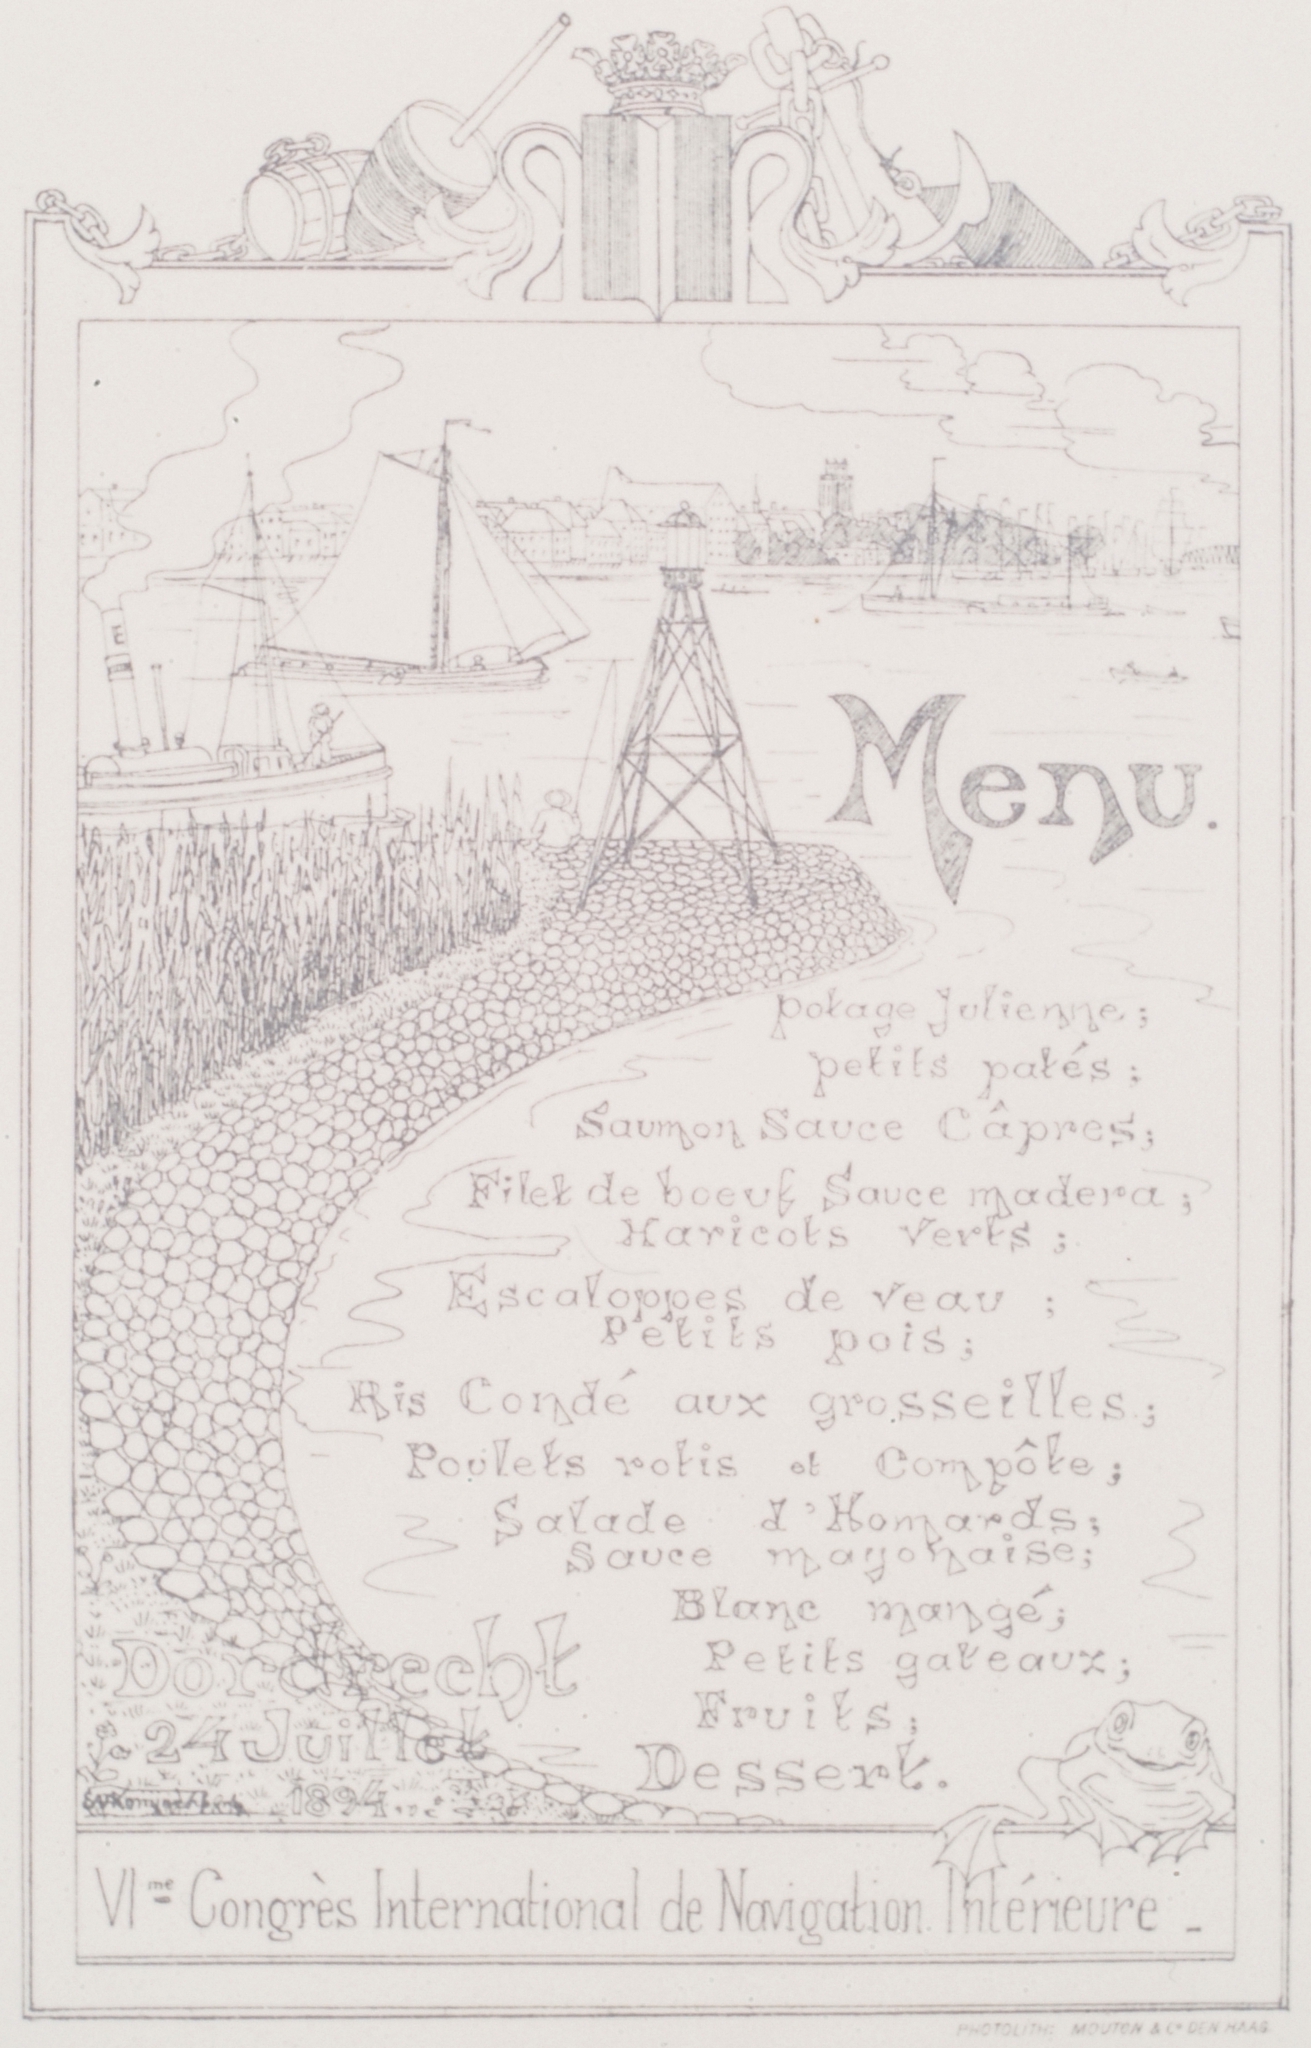 Menu.
potage Julienne;
petits patés;
Saumon Sauce Câpres;
Filet de boeuf Sauce madera;
Haricots verts;
Escaloppes de veau;
Petits pois;
Ris Condé aux grosseilles;
Poulets rotis et Compôte;
Salade d'Homards;
Sauce mayonaise;
Blanc mangé;
Petits gateaux;
Fruits;
Dessert.
Dordrecht
24 Juillet
1894.
VIme Congrès International de Navigation Intérieure -
PHOTOLITH: MOUTON & Co DEN HAAG.